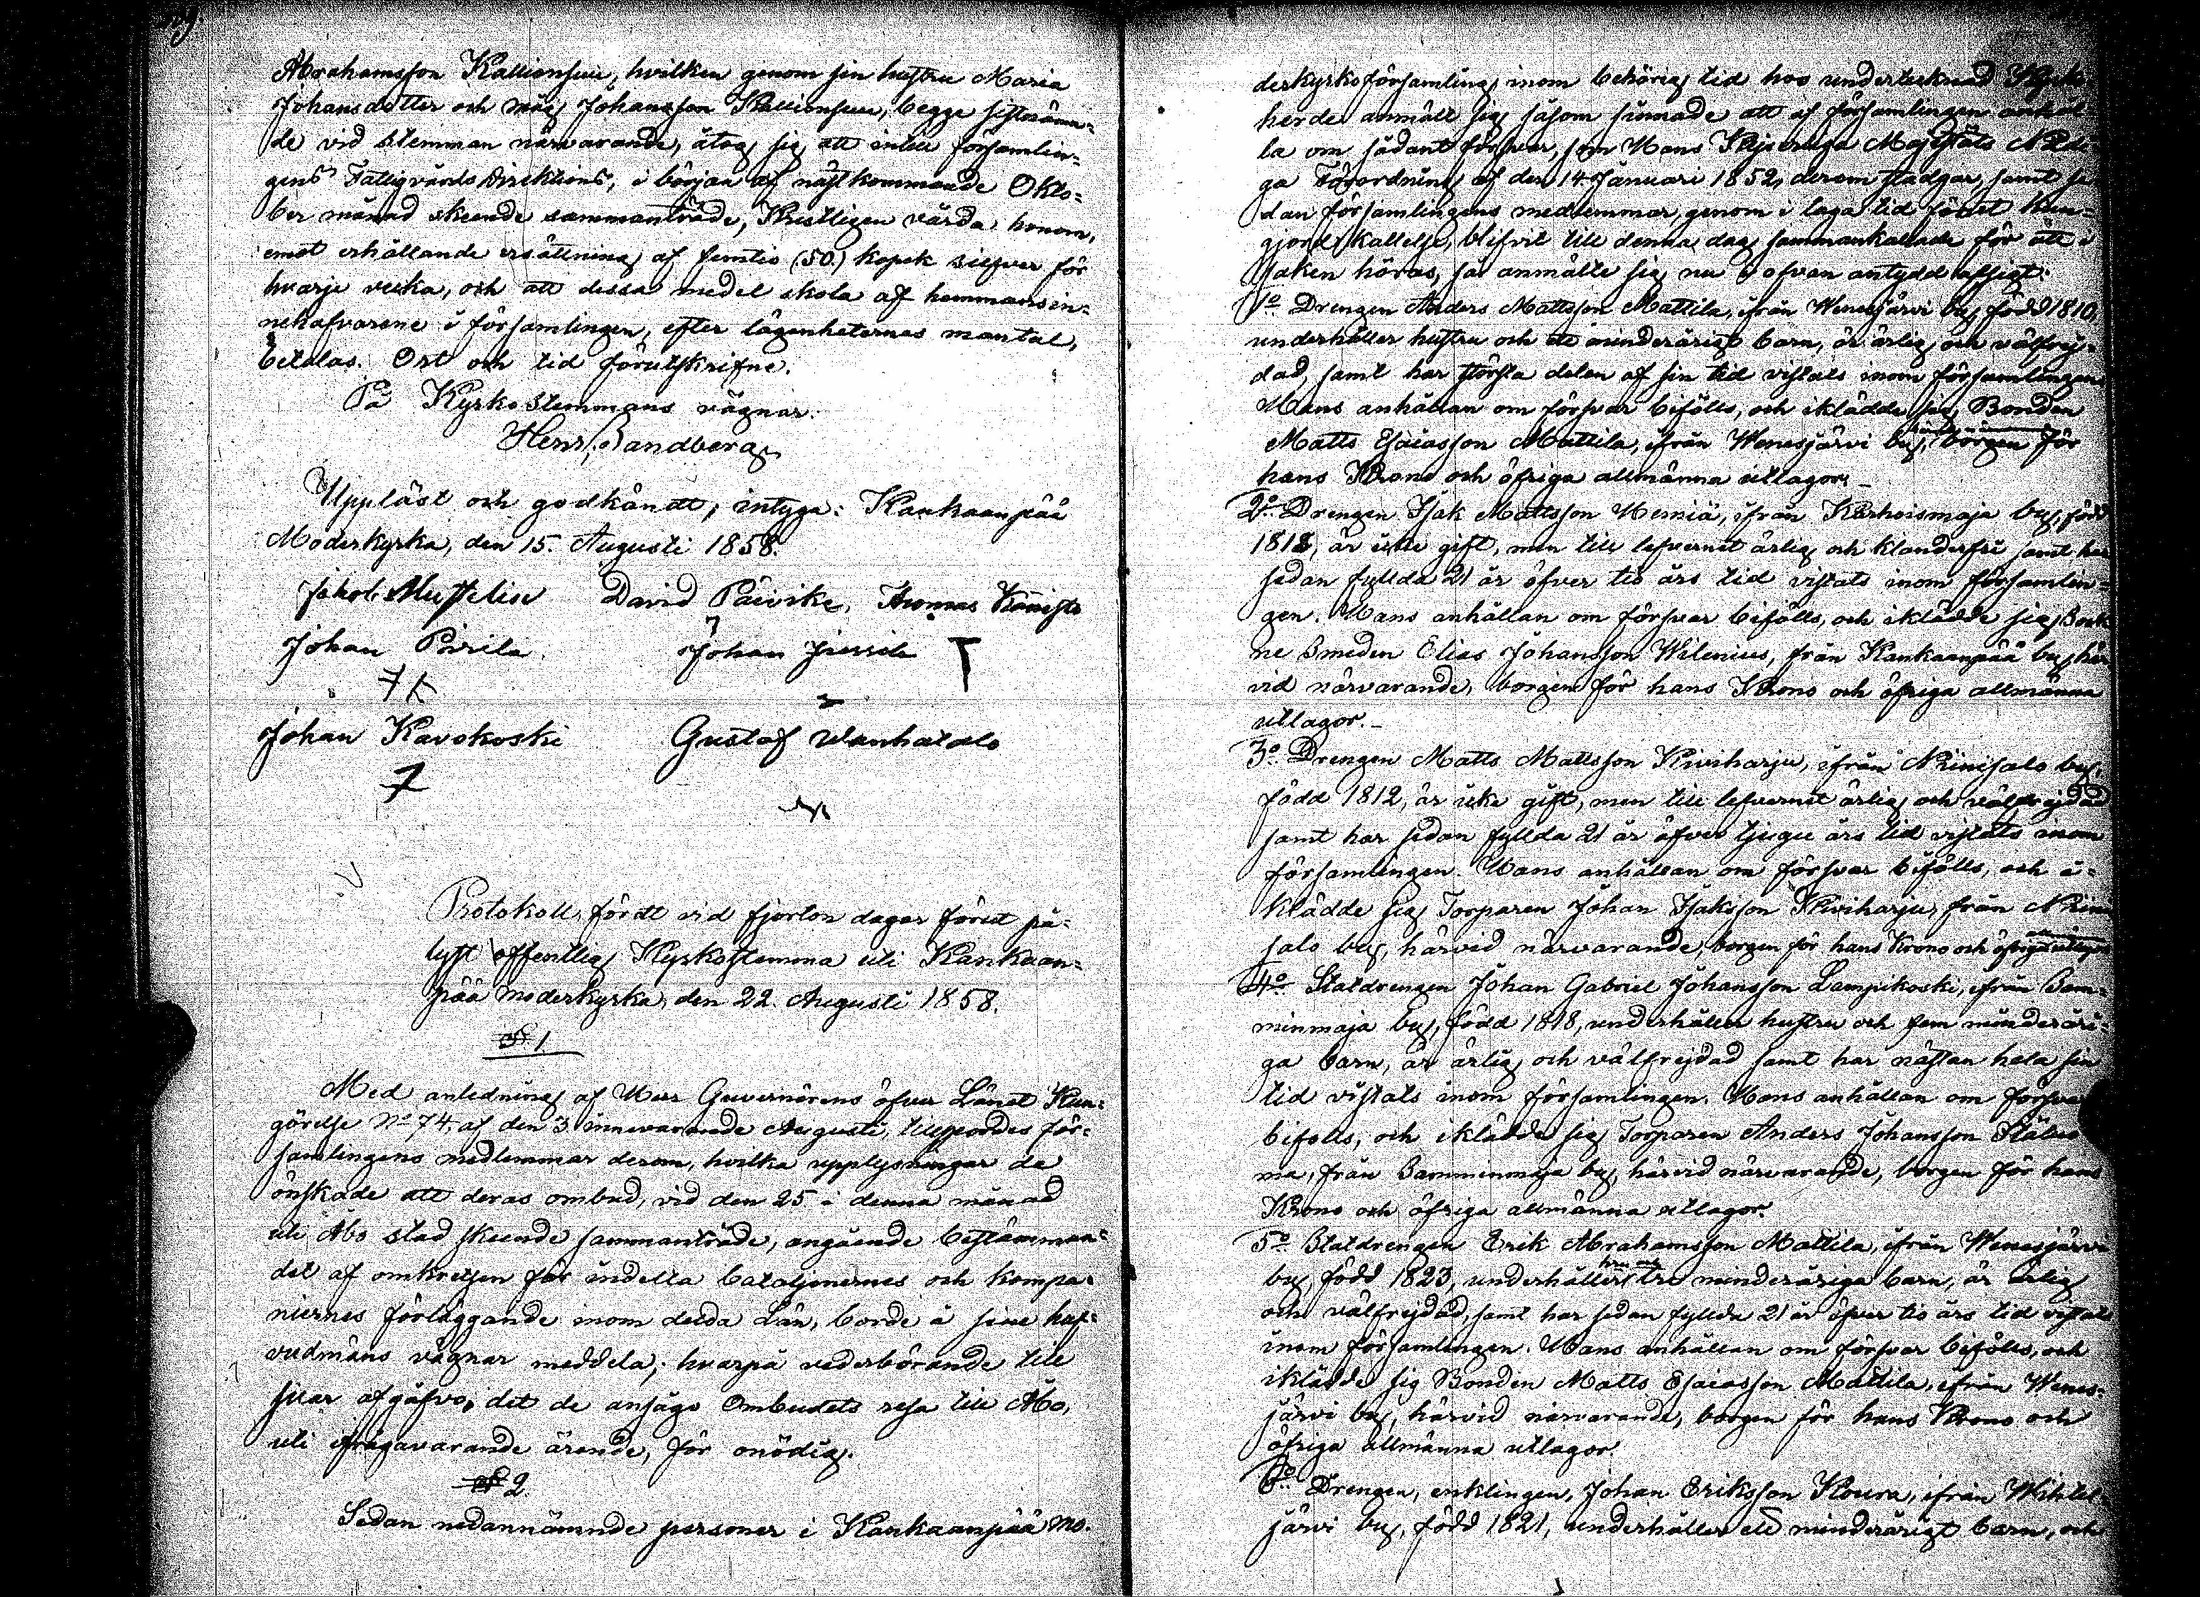 Abrahamsson Kallionsuu, hvilken genom sin hustru Maria
Johansdotter och måg Johansson Kallionsuu, begge sistnämn-
de vid stemman närvarande, åtog sig, att intill församlin-
gens Fattigvårds Direktions, i början af nästkommande Okto-
ber månad skeende sammanträde, Kristligen vårda honom,
emot erhållande ersättning af femtio (50.) kopek silfver för
hvarje vecka, och att dessa medel skola af hemmansin-
nehafvarene i församlingen, efter lägenheternas mantal,
betalas. Ort och tid förutskrifne.
På Kyrkostemmans vägnar:
Henr. Sandberg
Uppläst och godkändt, intyga: Kankaanpää
Moderkyrka, den 15. Augusti 1858.
Jakob David Päivike, Thomas
Johan Pirilä Johan
Johan Kavokoski Gustaf Wanhatalo
Protokoll, fördt vid fjorton dagar förut på-
lyst offentlig Kyrkostemma uti Kankaan-
pää moderkyrka, den 22. Augusti 1858.
§ 1.
Med anledning af Herr Guvernörens öfver Länet Kun-
görelse No 74, af den 3 innevarande Augusti, tillspordes för-
samlingens medlemmar derom, hvilka upplysningar de
önskade att deras ombud, vid den 25 i denna månad
uti Åbo stad skeende sammanträde, angående bestämman-
det af omkretsen för indelta bataljonernes och kompa-
niernes förläggande inom detta Län, borde å sine huf-
vudmäns vägnar meddela; hvarpå vederbörande till
svar afgåfvo, det de ansågo Ombudets resa till Åbo,
uti ifrågavarande ärende, för onödig.
§ 2.
Sedan nedannämnde personer i Kankaanpää mo-
derkyrkoförsamling inom behörig tid hos undertecknad Kyrko-
herde anmält sig såsom sinnade att af församlingen anhål-
la om sådant försvar, som Hans Kejserliga Majestäts Nådi-
ga Förordning af den 14 Januari 1852, derom stadgar, samt se-
dan församlingens medlemmar, genom i laga tid förut kun-
gjord kallelse, blifvit till denna dag sammankallade för att i
saken höras, så anmälte sig nu i ofvan antydd afsigt:
1o Drengen Anders Mattsson Mattila, ifrån Wenesjärvi by, född 1810,
underhåller hustru och ett minderårigt barn, är ärlig och välfrej-
dad, samt har största delen af sin tid vistats inom församlingen.
Hans anhållan om försvar bifölls, och iklädde sig Bonden
Matts Esaiasson Mattila, ifrån Wenesjärvi by, borgen för
hans Krono och öfriga allmänna utlagor. _
2o Drengen Isak Mattsson Heiniä, ifrån Karhoismaja by, född
1818, är icke gift, men till lefvernet ärlig och klanderfri samt har
sedan fyllda 21 år öfver tio års tid vistats inom församlin-
gen. Hans anhållan om försvar bifölls, och iklädde sig Sock-
ne Smeden Elias Johansson Wilenius, från Kankaanpää by, här-
vid närvarande, borgen för hans Krono och öfriga allmänna
utlagor. _
3o Drengen Matts Mattsson Kiviharju, ifrån Niinisalo by,
född 1812, är icke gift, men till lefvernet ärlig och välfrejdad
samt har sedan fyllda 21 år öfver tjugu års tid vistats inom
församlingen. Hans anhållan om försvar bifölls, och i-
klädde sig Torparen Johan Isaksson Kiviharju, från Niini-
salo by, härvid närvarande, borgen för hans Krono och öfriga utlagor
4o Statdrengen Johan Gabriel Johansson Lampikoski, ifrån Sam-
minmaja by, född 1818, underhåller hustru och fem minderåri-
ga barn, är ärlig och välfrejdad samt har nästan hela sin
tid vistats inom församlingen. Hans anhållan om försvar
bifölls, och iklädde sig Torparen Anders Johansson
ma, från Samminmaja by, härvid närvarande, borgen för hans
Krono och öfriga allmänna utlagor.
5o Statdrengen Erik Abrahamsson Mattila, ifrån Wenesjärvi
by, född 1823, underhåller hru och tre minderåriga barn, är ärlig
och välfrejdad, samt har sedan fyllda 21 år öfver tio års tid vistats
inom församlingen. Hans anhållan om försvar bifölls, och
iklädde sig Bonden Matts Esaiasson Mattila, ifrån Wenes-
järvi by, härvid närvarande, borgen för hans Krono och
öfriga allmänna utlagor.
6o Drengen, enklingen, Johan Eriksson Koura, ifrån Wihtel-
järvi by, född 1821, underhåller ett minderårigt barn, och